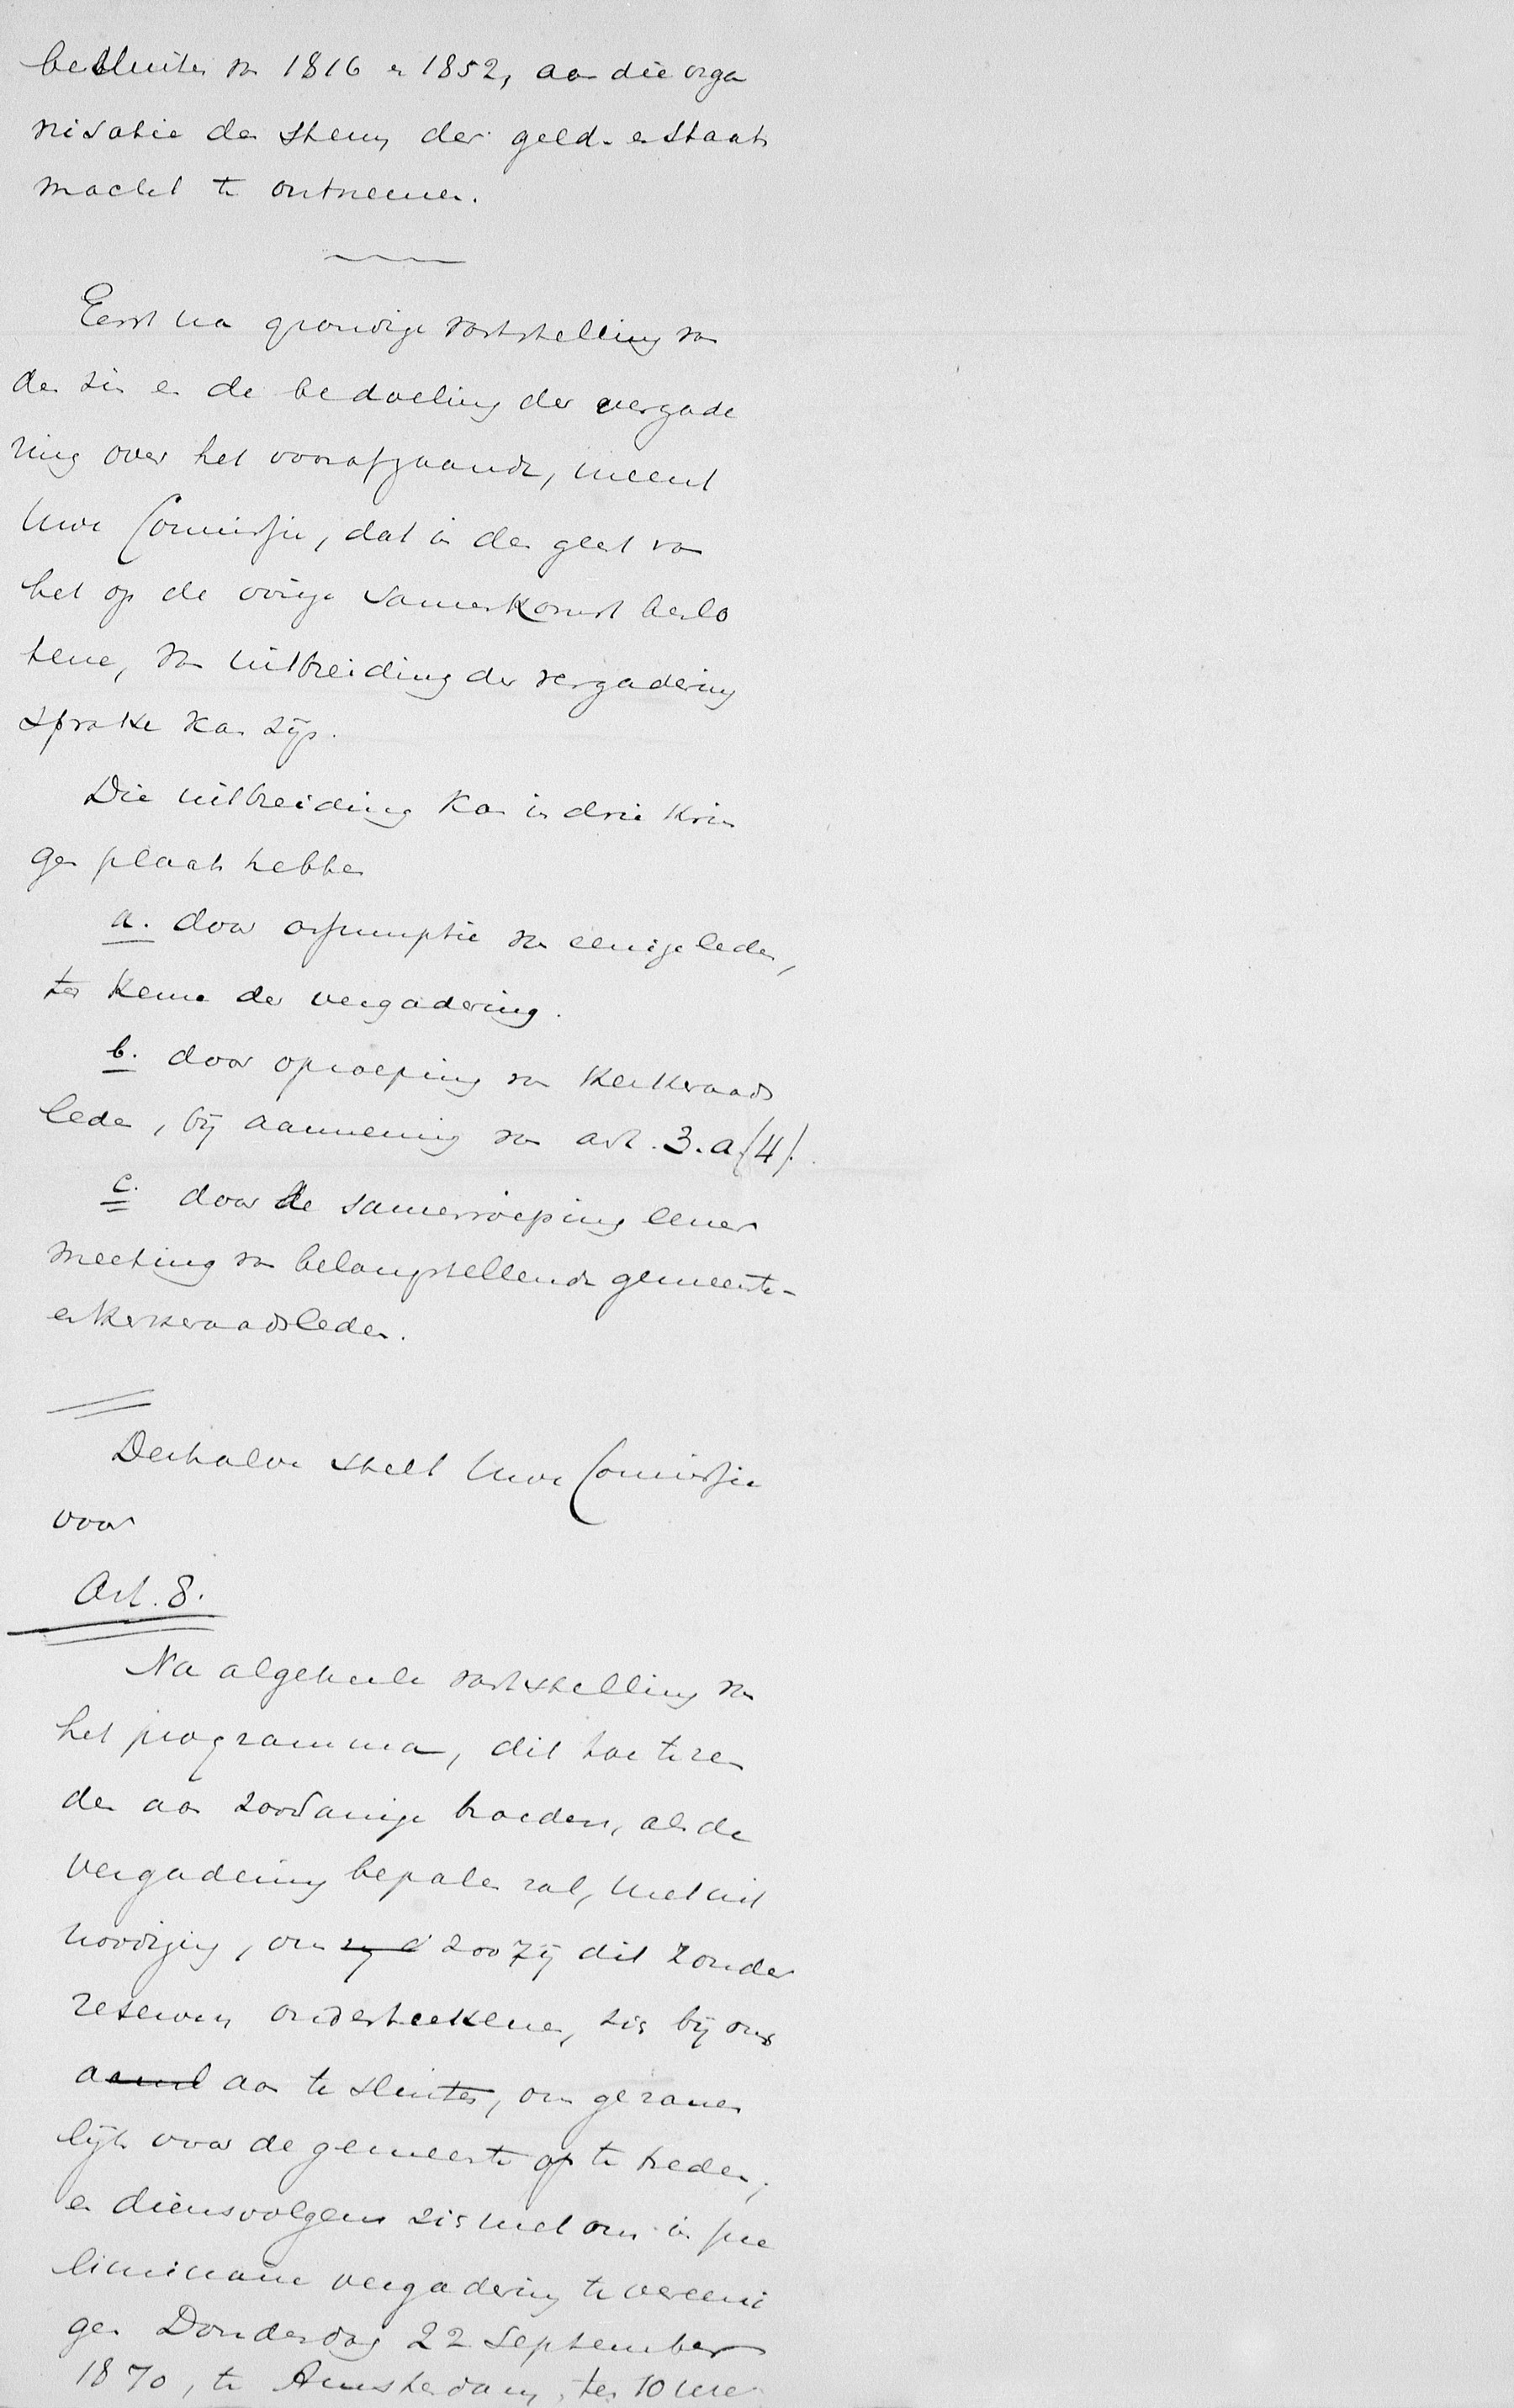 besluiten van 1816 en 1852, aan die orga
nisatie den steun der geld- en Staats
macht te ontnemen.
Eerst na grondige vaststelling van
den zin en de bedoeling der vergade
ring over het voorafgaande, meent
Uwe Commissie, dat in den geest van
het op de vorige samenkomst beslo
tene, van uitbreiding der vergadering
sprake kan zijn.
Die uitbreiding kan in drie krin
gen plaats hebben
a. door assumptie van eenige leden,
ter keuze der vergadering.
b. door oproeping van Kerkeraads
leden, bij aanneming van art. 3.a (4).
c. door de samenroeping eener
meeting van belangstellende gemeente-
en kerkeraadsleden.
Derhalve stelt Uwe Commissie
voor
Art. 8.
Na algeheele vaststelling van
het programma, dit toe te zen
den aan zoodanige broeders, als de
vergadering bepalen zal, met uit
noodiging, om zoo zij dit zonder
reserven onderteekenen, zich bij ons
aan te sluiten, om gezamen
lijk voor de gemeente op te treden;
en diensvolgens zich met ons in pre
liminaire vergadering te vereeni
gen Donderdag 22 September
1870, te Amsterdam, ten 10 ure